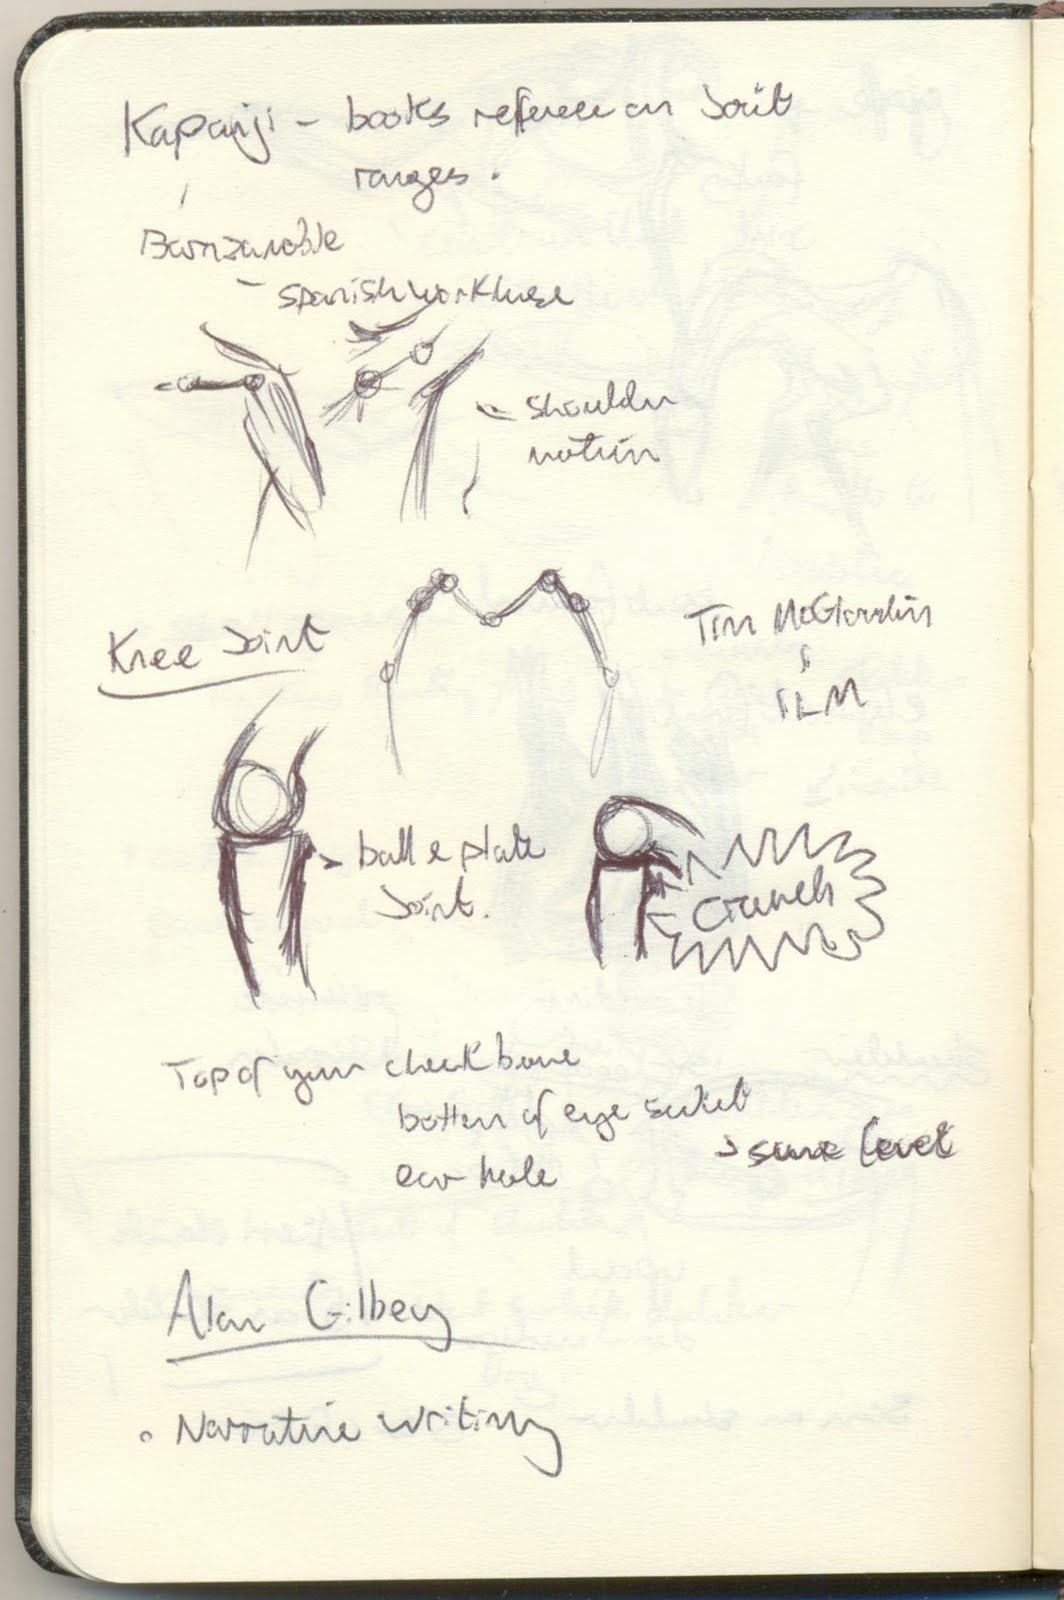 Kapanji - books reference on Joint
ranges.
- spanish workhorse
- shoulder
motion
Knee Joint
Tim McGlondin
ILM
> ball & plate
Joint.
Crunch
Top of your cheek bone
bottom of eye socket
> same level
ear hole
Alan Gilbey
• Narrative writing